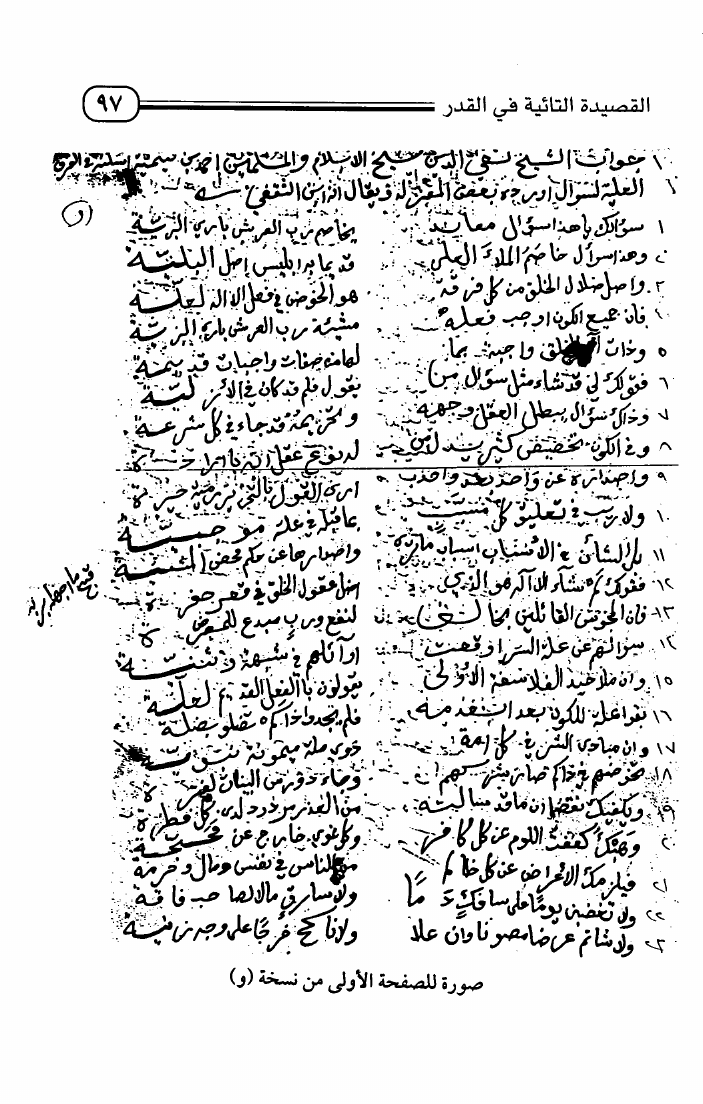 القصيدة التائية في القدر ٩٧
جواب الشيخ تقي الدين شيخ الاسلام والمسلمين احمد بن تيمية
لسؤال اورده بعض المعتزلة
(و)
١ سؤالك يا هذا سؤال معاند يخاصم رب العرش باري البرية
وهذا سؤال خاصم الملاء العلى قديما به ابليس اصل البلية
٣ واصل ضلال الخلق من كل فرقة هو الخوض في فعل الاله لعلة
فان جميع الكون اوجب فعله مشيئة رب العرش باري البرية
٥ وذات الخلق واجبة بما لها من صفات واجبات قديمة
٦ فقولك لم قد شاء مثل سؤال من يقول فلم قد كان في الازلية
٧ وذاك سؤال يبطل العقل وجهه وتحريمه قد جاء في كل شرعة
٨ وفي الكون تخصيص كثير يدل من له نوع عقل انه بارادة
٩ واصداره عن واحد بعد واحد ارى القول بالتجويز
١٠ ولا ريب في تعليق كل مسبب بما قبله في علة موجبية
١١ بل الشأن في الاسباب اسباب ما ترى واصدارها عن حكم محض المشيئة
١٢ فقولك لم شاء الاله هو الذي اضل عقول الخلق في قعر حفرة
١٣ فان المجوس القائلين بخالق لنفع ورب مبدع للمضرة
سؤالهم عن علة السر اوقعت اوائلهم في شبهة
١٥ وان ملاحيد الفلاسفة الاولى يقولون بالفعل القديم لعلة
١٦ بغوا علة للكون بعد انعدامه فلم يجدوا ذاكم فضلوا بضلة
١٧ وان مبادي الشر في كل امة ذوي ملة ميمونة نبوية
١٨ بخوضهم في ذاكم صار شركهم وجاء دروس البينات لفترة
١٩ ويكفيك نقضا ان ما قد سالته من العذر مردود لدى كل فطرة
٢٠ وهبك كففت اللوم عن كل كافر وكل غوي خارج عن محجة
٢١ فيلزمك الاعراض عن كل ظالم الناس في نفس ومال وحرمة
٢٢ ولا تغضبن يوما على سافك دما ولا سارق مالا لصاحب فاقة
٢٣ ولا شاتم عرضا مصونا وان علا ولا ناكح فرجا على وجه زنية
صورة للصفحة الأولى من نسخة (و)